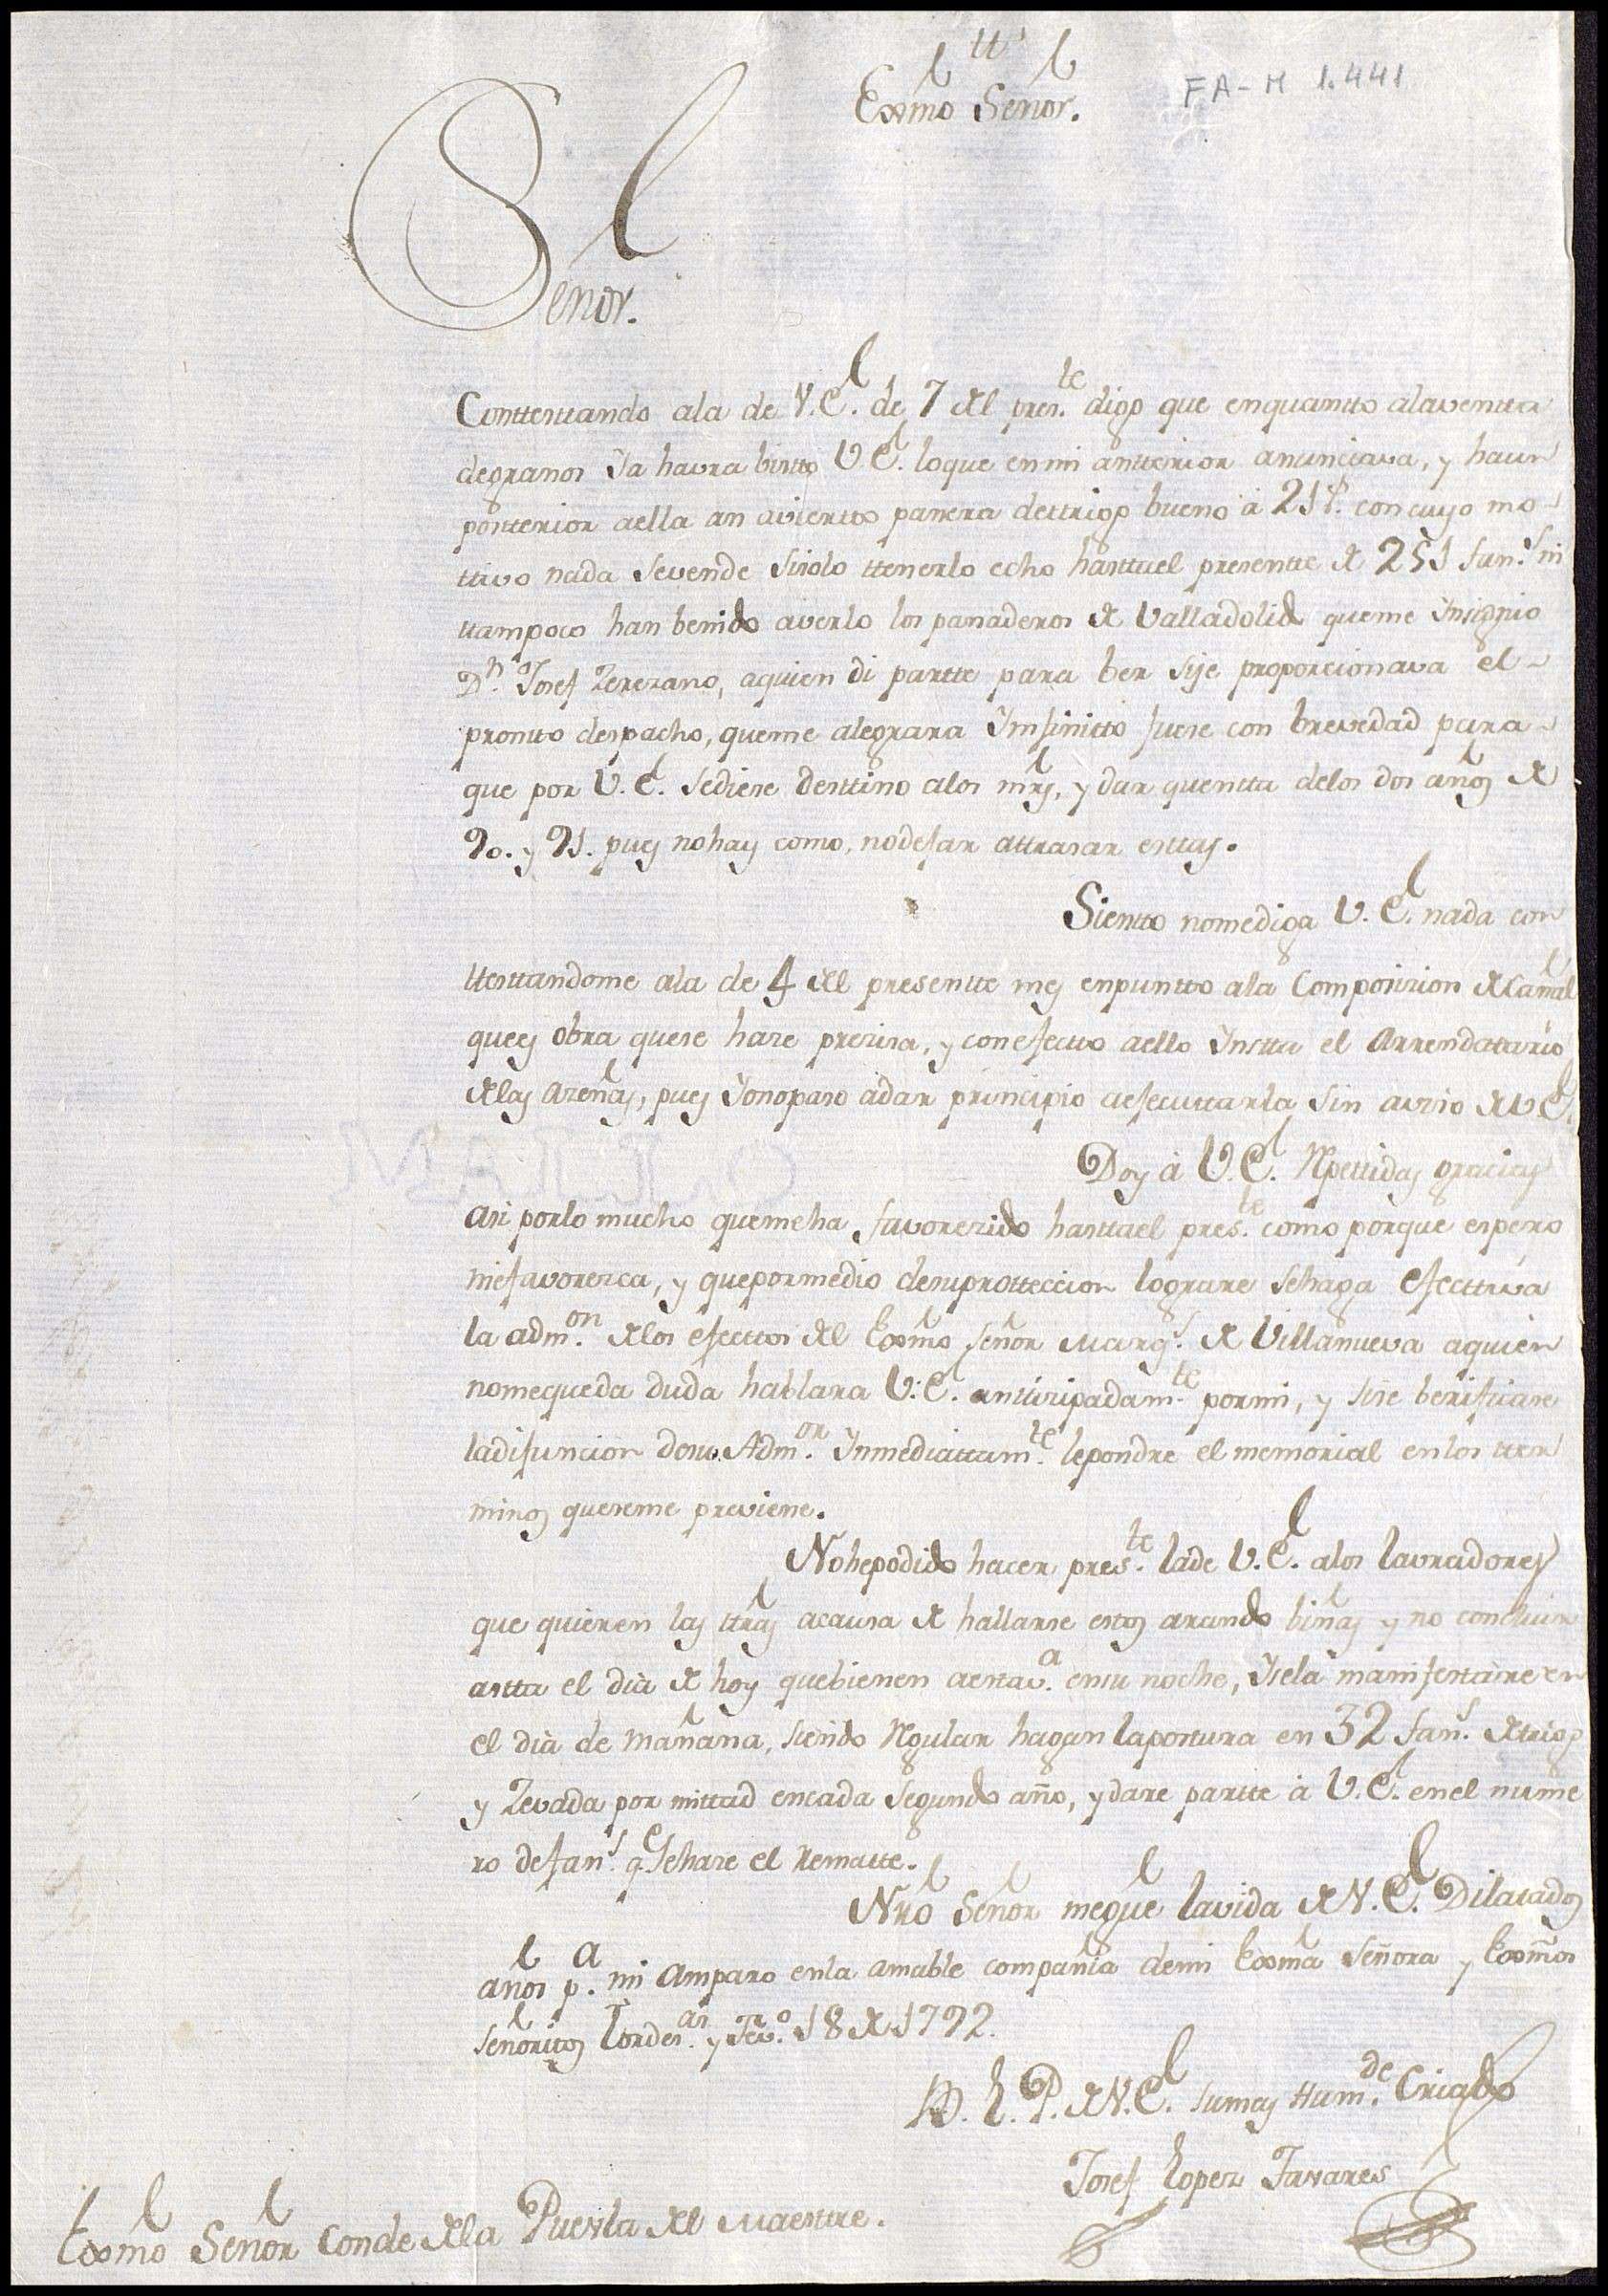 tt
Exmo Señor.
FA-M 1.441
Señor.
Conttesttando ala de V.E. de 7 del pres.te digo que enquantto alaventta
degranos Ya havra bistto V.E. loque enmi antterior anunciava, y haun
postterior aella an aviertto panera dettrigo bueno à 21 r.s con cuyo mo-
ttivo nada sevende sisolo ttenerlo echo hasttael presentte de 251 fan.s ni
ttampoco han benido averlo los panaderos de Valladolid queme Ynsignio
D.n Josef Zerezano, aquien di partte para ber sise proporcionava el
prontto despacho, queme alegrara Ynfinitto fuese con brevedad para
que por V.E. sediese desttino alos mrs, y dar quentta delos dos años de
90. y 91. pues nohay como, nodejar attrasar esttas.
Sientto nomediga V.E. nada con
ttesttandome ala de 4 del presentte mes enpuntto ala Composizion del Cañal
quees obra quese haze prezisa, y conefectto aello Ynstta el Arrendatario
delas Azeñas, pues Yonopaso adar principio aejecuttarla sin avizo de V.E.
Doy à V.E. Repettidas gracias
asi porlo mucho quemeha favorezido hasttael pres.te como porque espero
mefavorezca, y quepormedio desuprotteccion lograre sehaga efecttiva
la adm.on delos efecttos del Exmo Señor Marq.s de Villanueva aquien
nomequeda duda hablara V.E. anttizipadam.te pormi, y sise berificase
ladifuncion desu Adm.or Ynmediattam.te lepondre el memorial enlos tter
minos queseme previene.
Nohepodido hacer pres.te lade V.E. alos lavradores
que quieren las ttras acausa de hallarse estos arando biñas y no concluir
astta el dia de hoy quebienen aesta v.a ensu noche, Ysela manifestaré en
el dia de mañana, siendo Regular hagan lapostura en 32 fan.s de trigo
y Zevada por mittad encada segundo año, y dare partte à V.E. enel nume
ro defan.s q.e sehaze el Rematte.
Nro Señor megue lavida de V.E. Dilatados
años p.a mi Amparo enla amable compañia demi Exma Señora y Exmos
señoritos Tordes.as y Fev.o 18 de 1792.
B. L. P. de V.E. sumas Hum.de Criado
Josef Lopez Tavares
Exmo Señor Conde dela Puevla del Maestre.